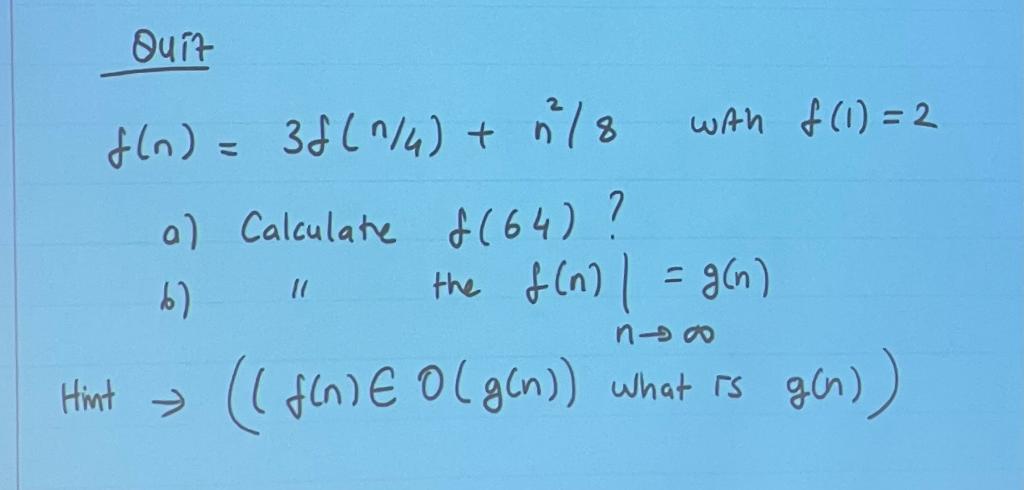 Quiz
f(n) = 3f(n/4) + n²/8 with f(1) = 2
a) Calculate f(64) ?
b) " the f(n) | = g(n)
n→∞
Hint → ((f(n) ∈ O(g(n)) what is g(n))